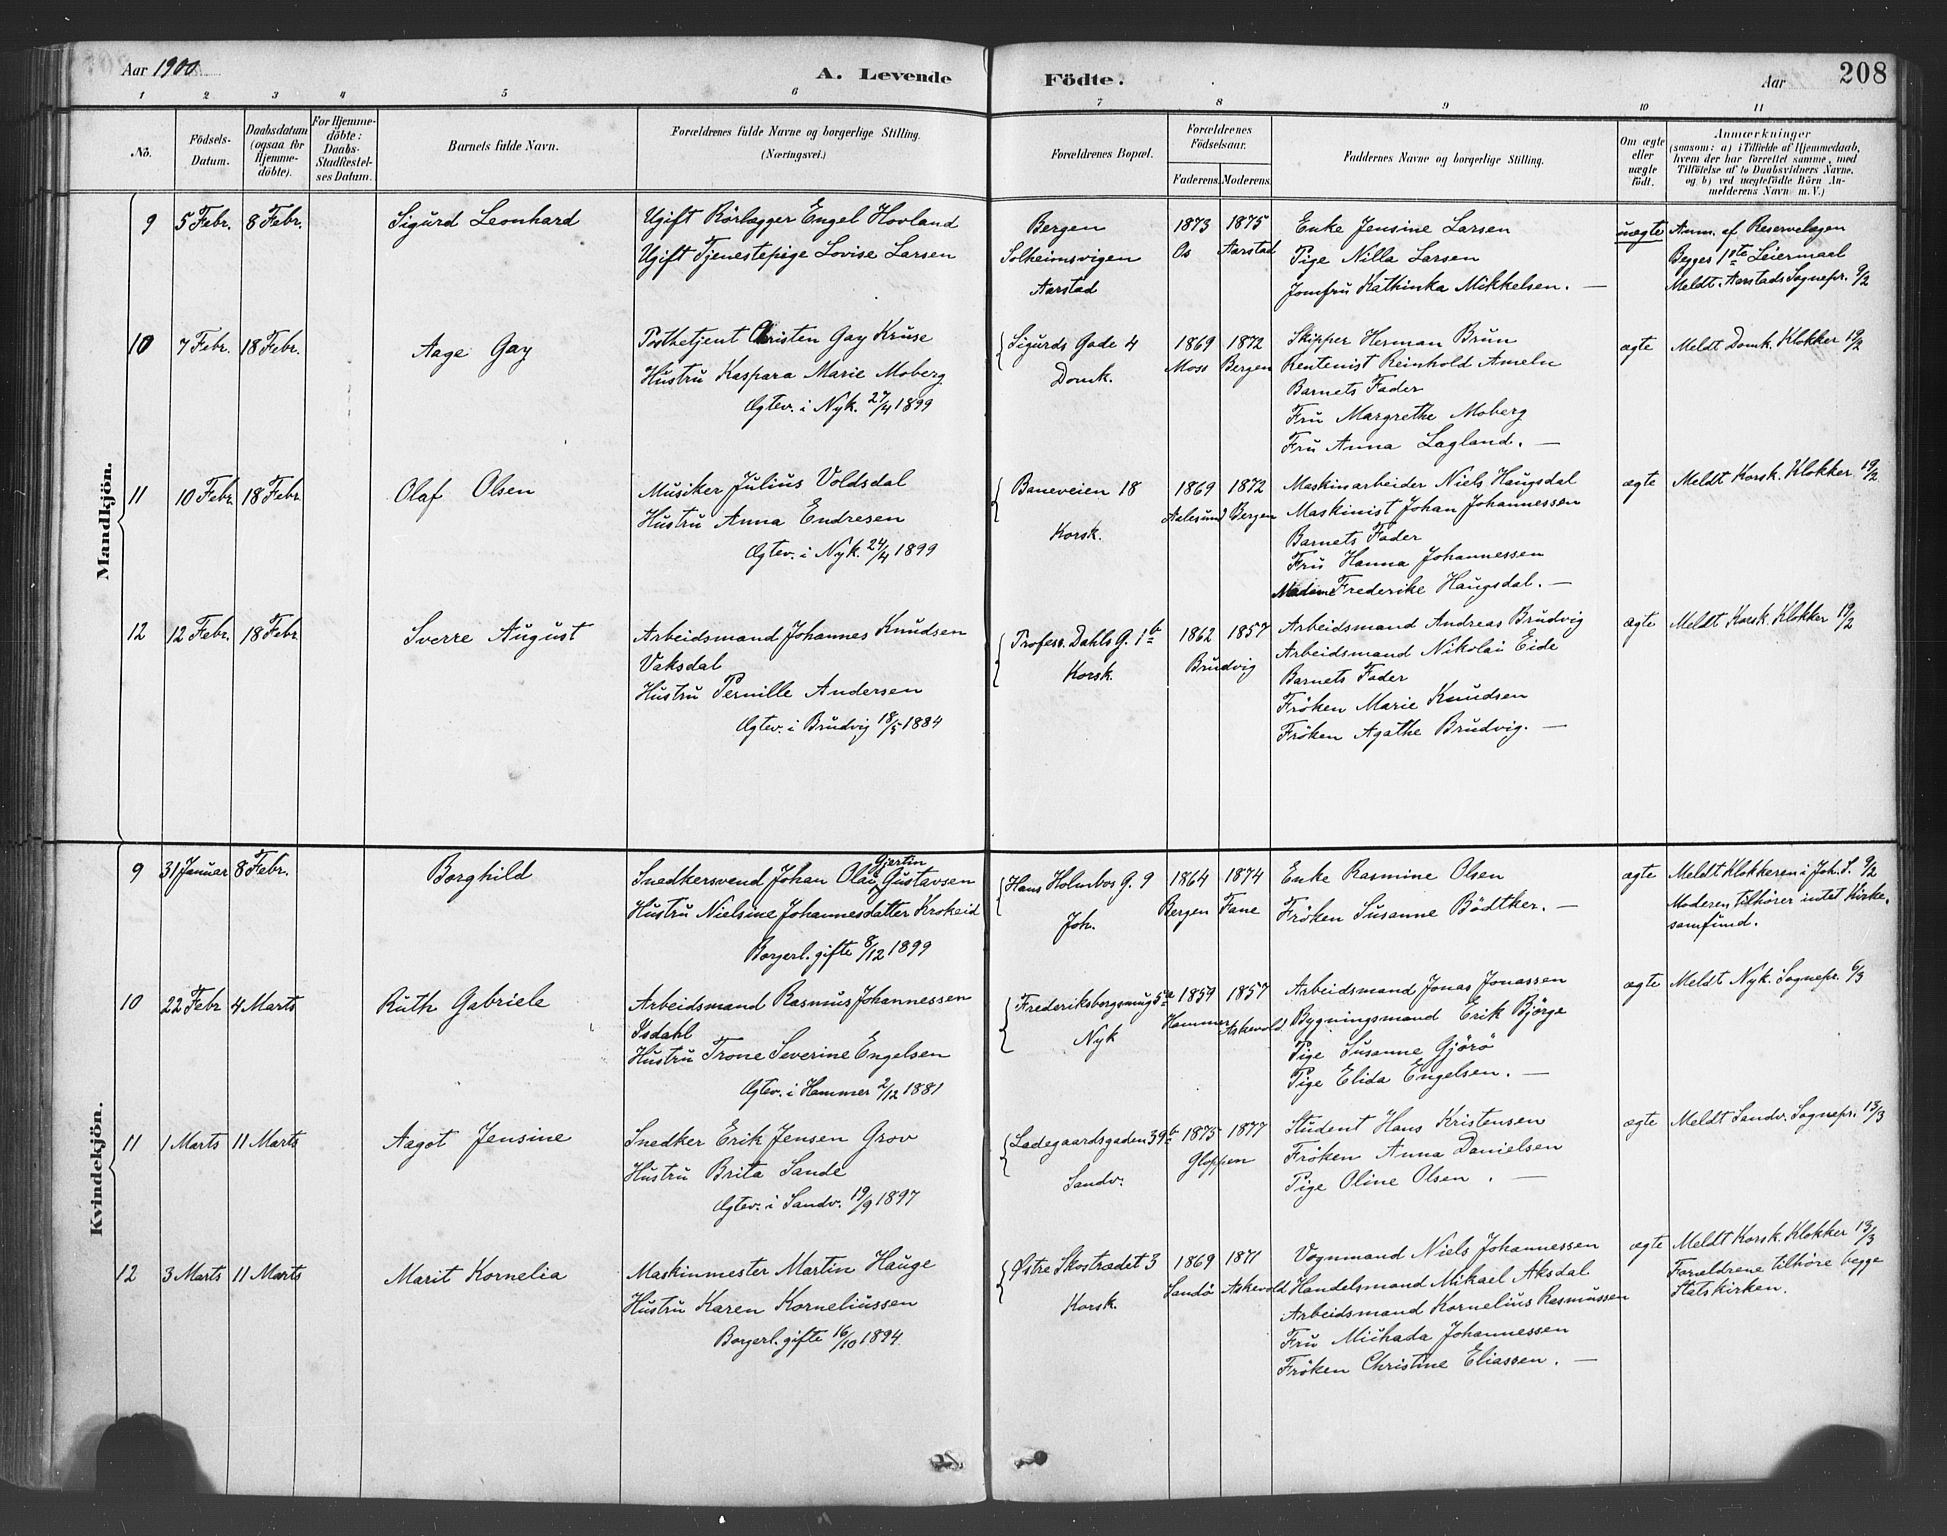 Aar 1900
A. Levende Födte.
Aar
208
1 2 3 4 5 6 7 8 9 10 11
No.
Födsels-Datum.
Daabsdatum (ogsaa for Hjemmedöbte).
For Hjemmedöbte: Daabs-Stadfæstelses Datum.
Barnets fulde Navn.
Forældrenes fulde Navne og borgerlige Stilling. (Næringsvei.)
Forældrenes Bopæl.
Forældrenes Födselsaar.
Faderens. Moderens.
Faddernes Navne og borgerlige Stilling.
Om ægte eller uægte födt.
Anmærkninger
(saasom: a) i Tilfælde af Hjemmedaab, hvem der har forrettet samme, med Tilföielse af to Daabsvidners Navne, og b) ved uægtefödte Börn Anmelderens Navn m. V.)
Mandkjön.
9 5 Febr. 8 Febr. Sigurd Leonhard
Ugift Rörlægger Engel Hovland
Ugift Tjenestepige Lovise Larsen
Bergen
Solheimsvigen
Aarstad
1873 1875
Os Aarstad
Enke Jensine Larsen
Pige Nilla Larsen
Jomfru Kathinka Mikkelsen. —
uægte
Anm. af Reservelægen
Begges 1ste Leiermaal
Meldt Aarstads Sognepr. 9/2
10 7 Febr. 18 Febr. Aage Gay
Postbetjent Christen Gay Kruse
Hustru Kaspara Marie Moberg
Ægtev. i Nyk. 27/4 1899
Sigurds Gade 4
Domk.
1869 1872
Moss Bergen
Skipper Herman Brun
Rentenist Reinhold Ameln
Barnets Fader
Fru Margrethe Moberg
Fru Anna Lagland. —
ægte
Meldt Domk. Klokker 19/2
11 10 Febr. 18 Febr. Olaf Olsen
Musiker Julius Voldsdal
Hustru Anna Endresen
Ægtev. i Nyk. 24/4 1899
Baneveien 18
Korsk.
1869 1872
Aalesund Bergen
Maskinarbeider Niels Haugsdal
Maskinist Johan Johannessen
Barnets Fader
Fru Hanna Johannessen
Madame Frederike Haugsdal. —
ægte
Meldt Korsk. Klokker 19/2
12 12 Febr. 18 Febr. Sverre August
Arbeidsmand Johannes Knudsen
Vaksdal
Hustru Pernille Andersen
Ægtev. i Brudvig 18/5 1884
Profess. Dahls G. 1b
Korsk.
1862 1857
Brudvig
Arbeidsmand Andreas Brudvig
Arbeidsmand Nikolai Eide
Barnets Fader
Fröken Marie Knudsen
Fröken Agathe Brudvig. —
ægte
Meldt Korsk. Klokker 19/2
Kvindekjön.
9 31 Januar 8 Febr. Borghild
Gjertin
Snedkersvend Johan Olai Gustavsen
Hustru Nielsine Johannesdatter Krokeid
Borgerl. gifte 8/12 1899
Hans Holmboes G. 9
Joh.
1864 1874
Bergen Fane
Enke Rasmine Olsen
Fröken Susanne Bödtker. —
ægte
Meldt Klokkeren i Joh. S. 9/2
Moderen tilhører intet Kirke-
samfund.
10 22 Febr 4 Marts Ruth Gabriele
Arbeidsmand Rasmus Johannessen
Isdahl
Hustru Trone Severine Engelsen
Ægtev. i Hammer 2/12 1881
Frederiksborgsmug 5a
Nyk
1859 1857
Hammer Askevold.
Arbeidsmand Jonas Jonassen
Bygningsmand Erik Björge
Pige Susanne Gjörö
Pige Elida Engelsen. —
ægte
Meldt Nyk. Sognepr. 6/3
11 1 Marts 11 Marts Aagot Jensine
Snedker Erik Jensen Grov
Hustru Brita Sande
Ægtev. i Sandv. 19/9 1897
Ladegaardsgaden 39b
Sandv.
1875 1877
Gloppen
Student Hans Kristensen
Fröken Anna Danielsen
Pige Oline Olsen. —
ægte
Meldt Sandv. Sognepr. 13/3
12 3 Marts 11 Marts Marit Kornelia
Maskinmester Martin Hauge
Hustru Karen Korneliussen
Borgerl. gifte 16/10 1894.
Østre Skostrædet 3
Korsk.
1869 1871
Sandö Askevold
Vognmand Niels Johannessen
Handelsmand Mikael Aksdal
Arbeidsmand Kornelius Rasmussen
Fru Michada Johannessen
Fröken Christine Eliassen. —
ægte
Meldt Korsk. Klokker 13/3
Forældrene tilhöre begge
Statskirken.